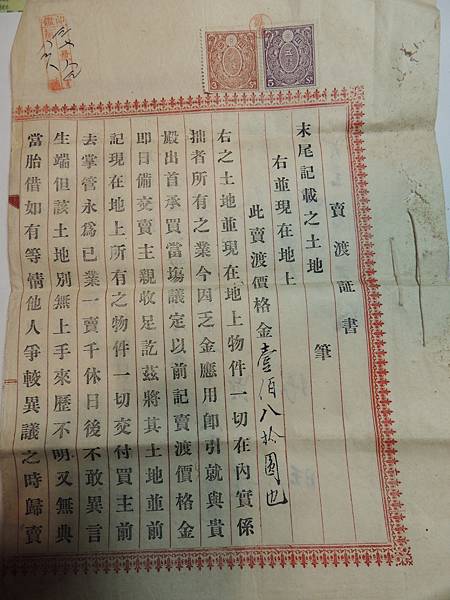 賣渡証書
末尾記載之土地 筆
右並現在地上
此賣渡價格金壹佰八拾圓也
右之土地並現在地上物件一切在內實係
拙者所有之業今因乏金應用卽引就與貴
殿出首承買當塲議定以前記賣渡價格金
卽日備交賣主親收足訖茲將其土地並前
記現在地上所有之物件一切交付買主前
去掌管永爲已業一賣千休日後不敢異言
生端但該土地別無上手來歷不明又無典
當胎借如有等情他人爭較異議之時歸賣
3 Sn
5 Sn